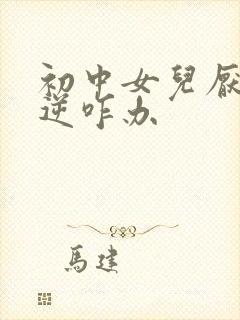 初中女兒厭
逆咋办
馬建